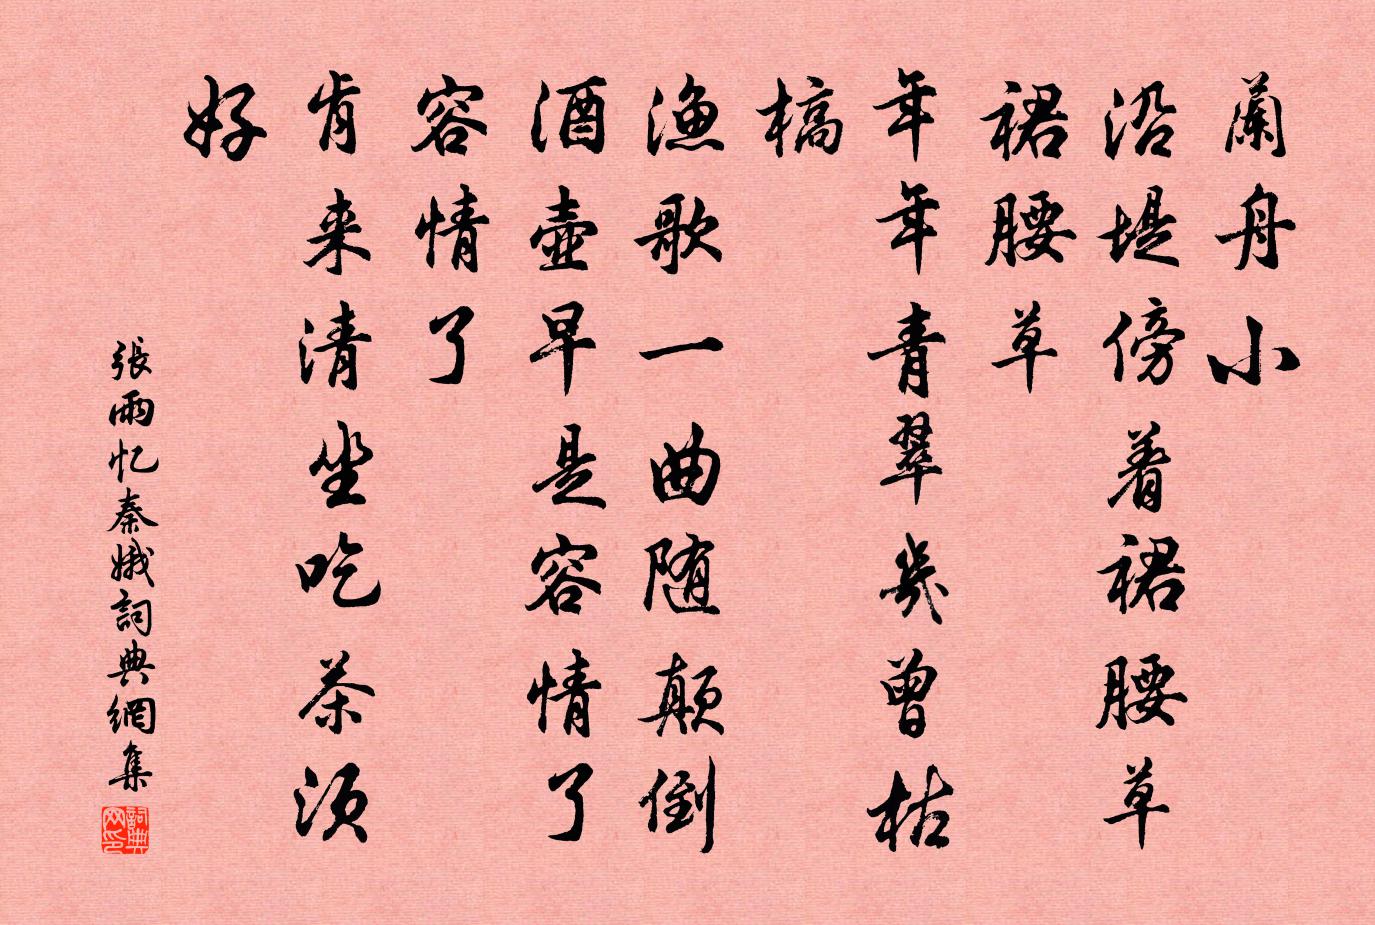 蘭舟小
沿堤傍着裙腰草
裙腰草
年年青翠幾曾枯
槁
漁歌一曲随顛倒
酒壺早是容情了
容情了
肯来清坐吃茶須
好
張雨忆秦娥詞典網集
詞典网印